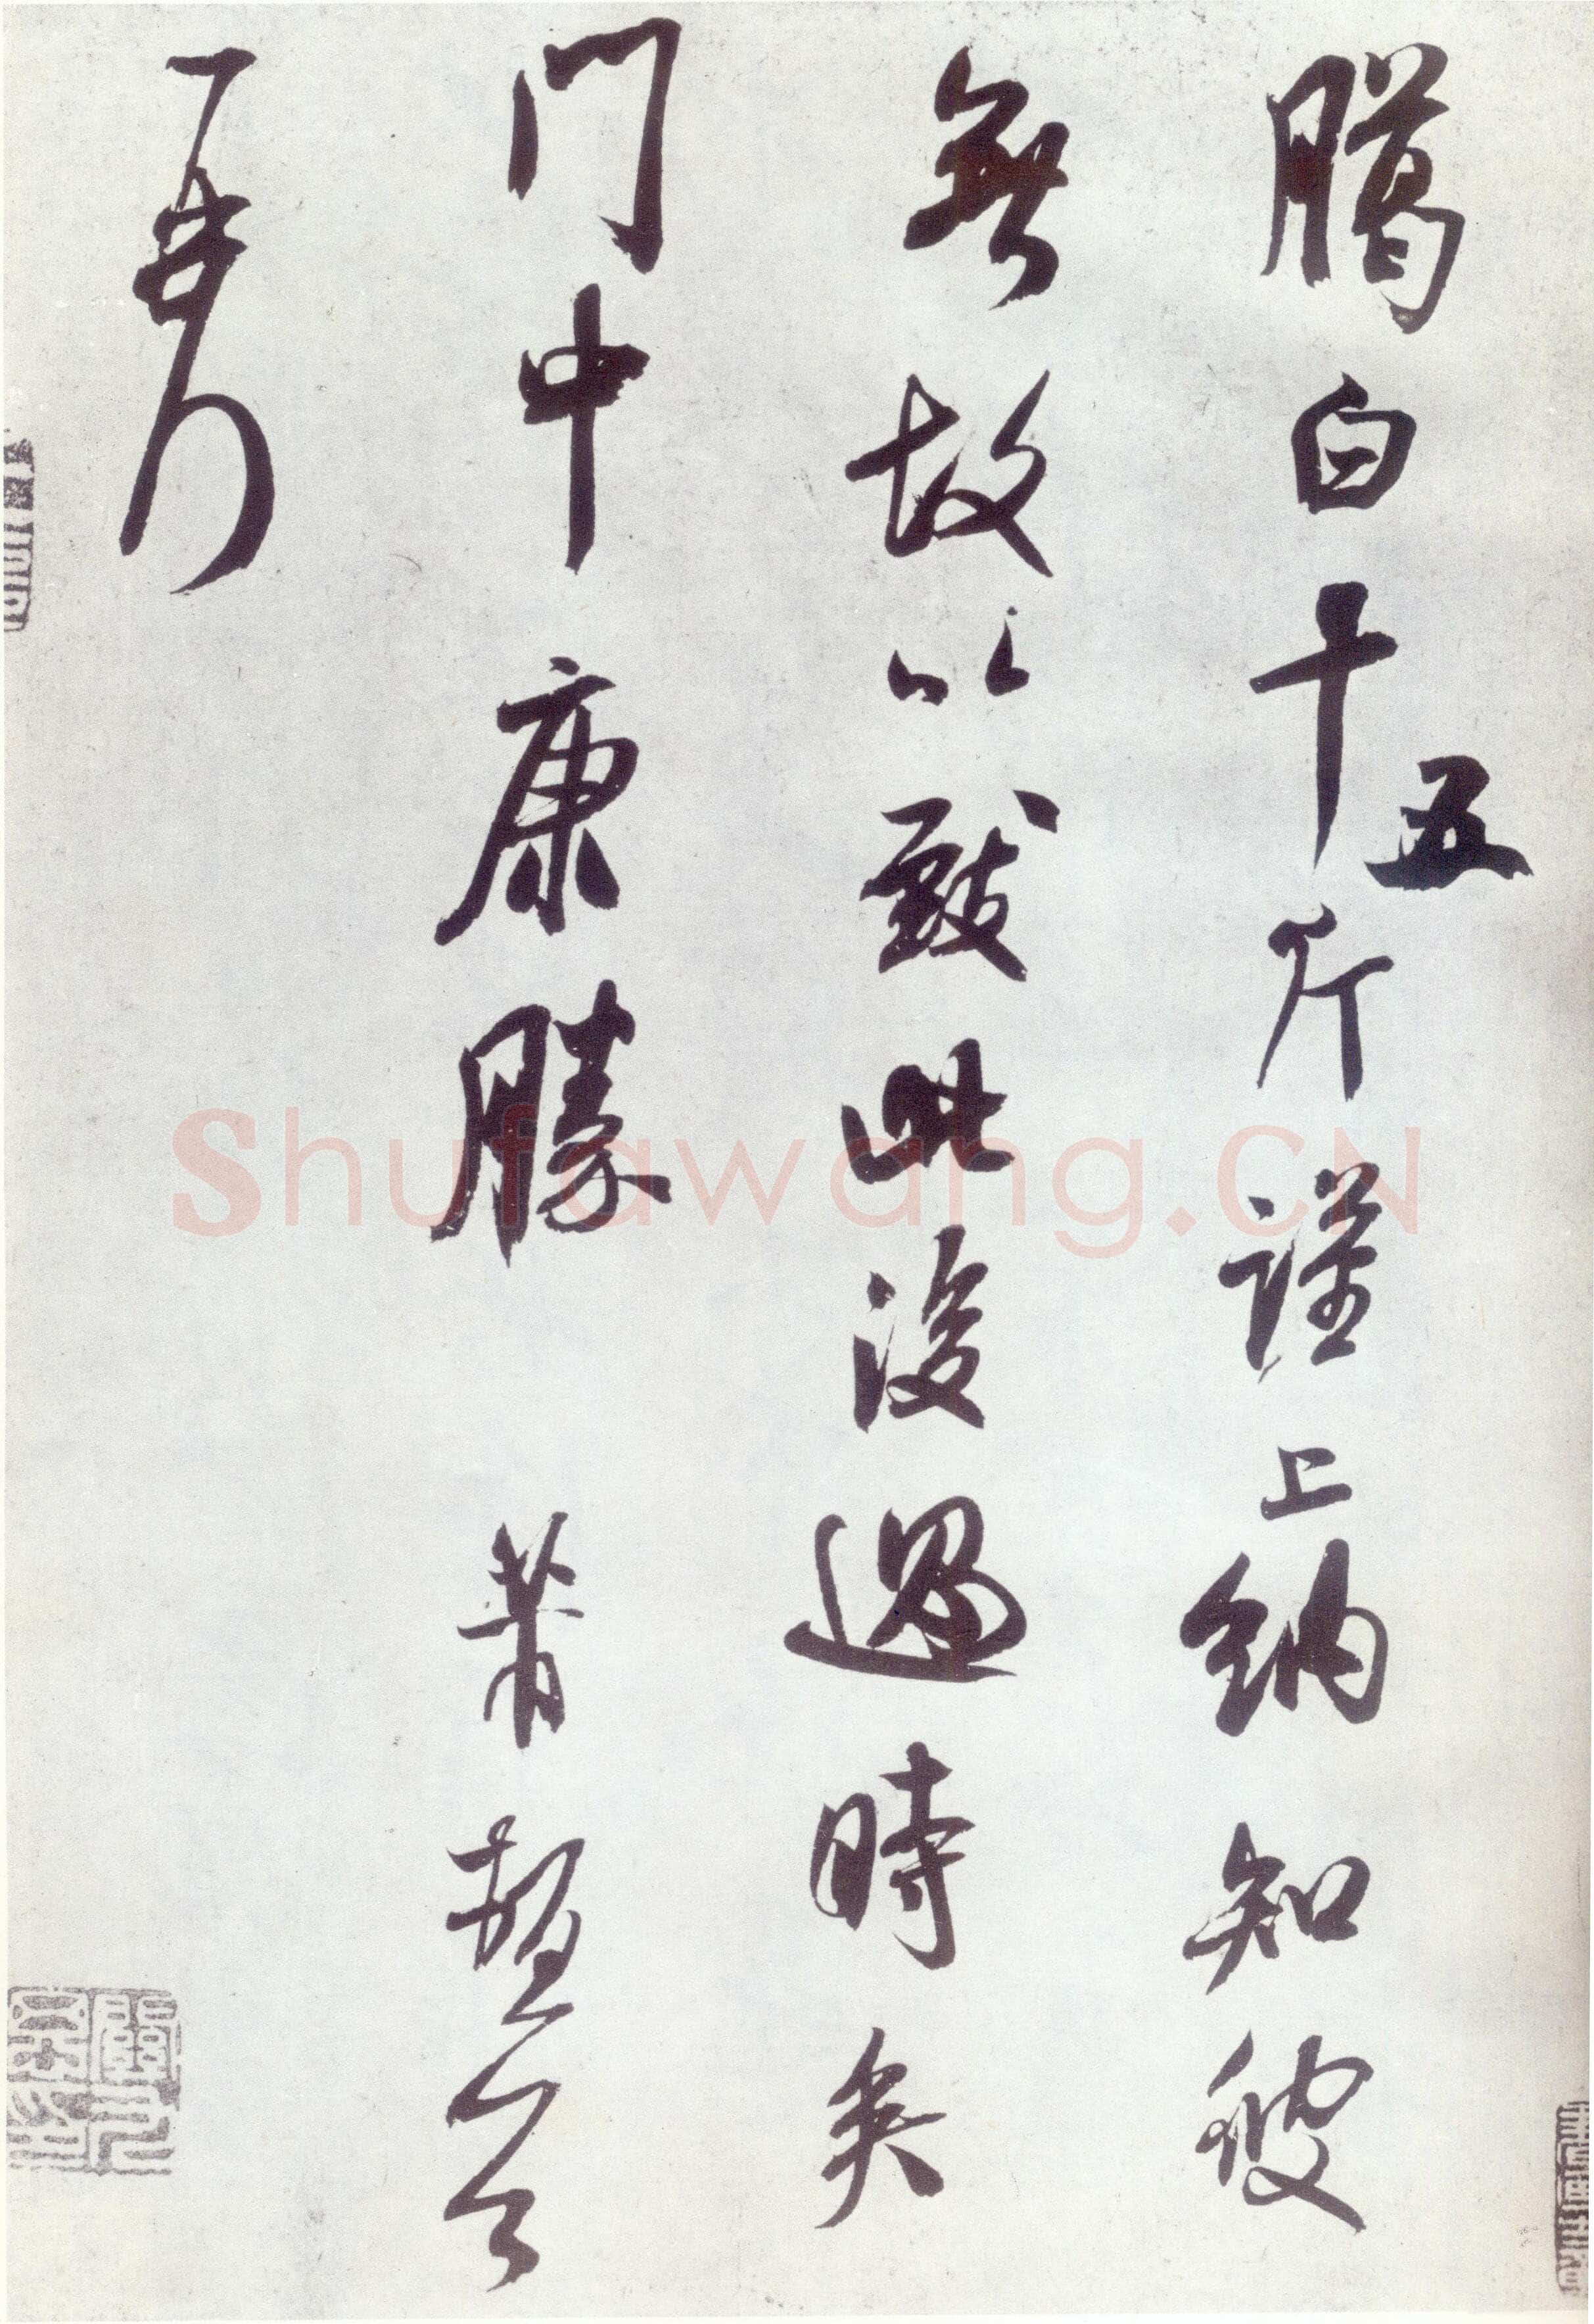 臈白十五斤謹上納知彼
無故以致此後過時矣
門中康勝 芾
Shufawang.CN